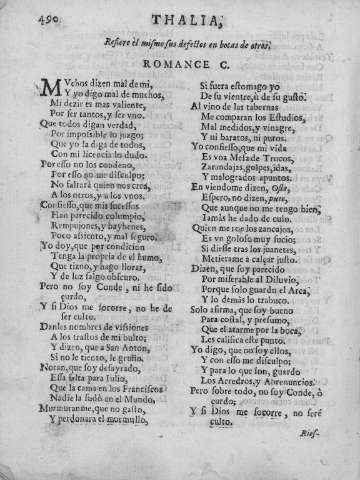 490
THALIA,
Refiere èl mismo sus defectos en bocas de otros.
ROMANCE C.
MVchos dizen mal de mi,
Y yo digo mal de muchos,
Mi dezir es mas valiente,
Por ser tantos, y ser vno.
Que todos digan verdad,
Por impossible lo juzgo;
Que yo la diga de todos,
Con mi licencia lo dudo.
Por esso no los condeno,
Por esso no me disculpo;
No faltarà quien nos crea,
A los otros, y a los vnos.
Confiesso, que mis sucessos
Han parecido columpio,
Rempujones, y bayvenes,
Poco assiento, y mal seguro.
Yo doy, que per condicion
Tenga la propria de el humo,
Que tizno, y hago llorar,
Y de luz salgo obscuro.
Pero no soy Conde, ni he sido
çurdo,
Y si Dios me socorre, no he de
ser culto.
Danles nombres de vissiones
A los trastos de mi bulto;
Y dizen, que a San Anton,
Si no le tiento, le gruño.
Notan, que soy desayrado,
Essa falta para Julio,
Que la cama en los Franciscos
Nadie la sudò en el Mundo,
Murmuranme, que no gasto,
Y perdonara el mormullo,
Si fuera estomago yo
De su vientre, ù de su gusto.
Al vino de las tabernas
Me comparan los Estudios,
Mal medidos, y vinagre,
Y ni baratos, ni puros.
Yo confiesso, que mi vida
Es voa Mesa de Trucos,
Zarandajas, golpes, idas,
Y malogrados apuntos.
En viendome dizen, Oste,
Espero, no dizen, puto,
Que aunque no me tengo bien,
Iamàs he dado de culo.
Quien me roe los zancajos,
Es vn goloso muy sucio;
Si diesse tras los juanetes,
Metierame a calçar justo.
Dizen, que soy parecido
Por miserable al Diluvio,
Porque solo guardo el Arca,
Y lo demàs lo trabuco.
Solo afirma, que soy bueno
Para costal, y presumo,
Que el atarme por la boca,
Les califica este punto.
Yo digo, que no soy ellos,
Y con esso me disculpo;
Y para lo que son, guardo
Los Arredros, y Abrenuncios.
Pero sobre todo, no soy Conde, ò
çurdo;
Y si Dios me socorre, no serè
culto.
Ries-